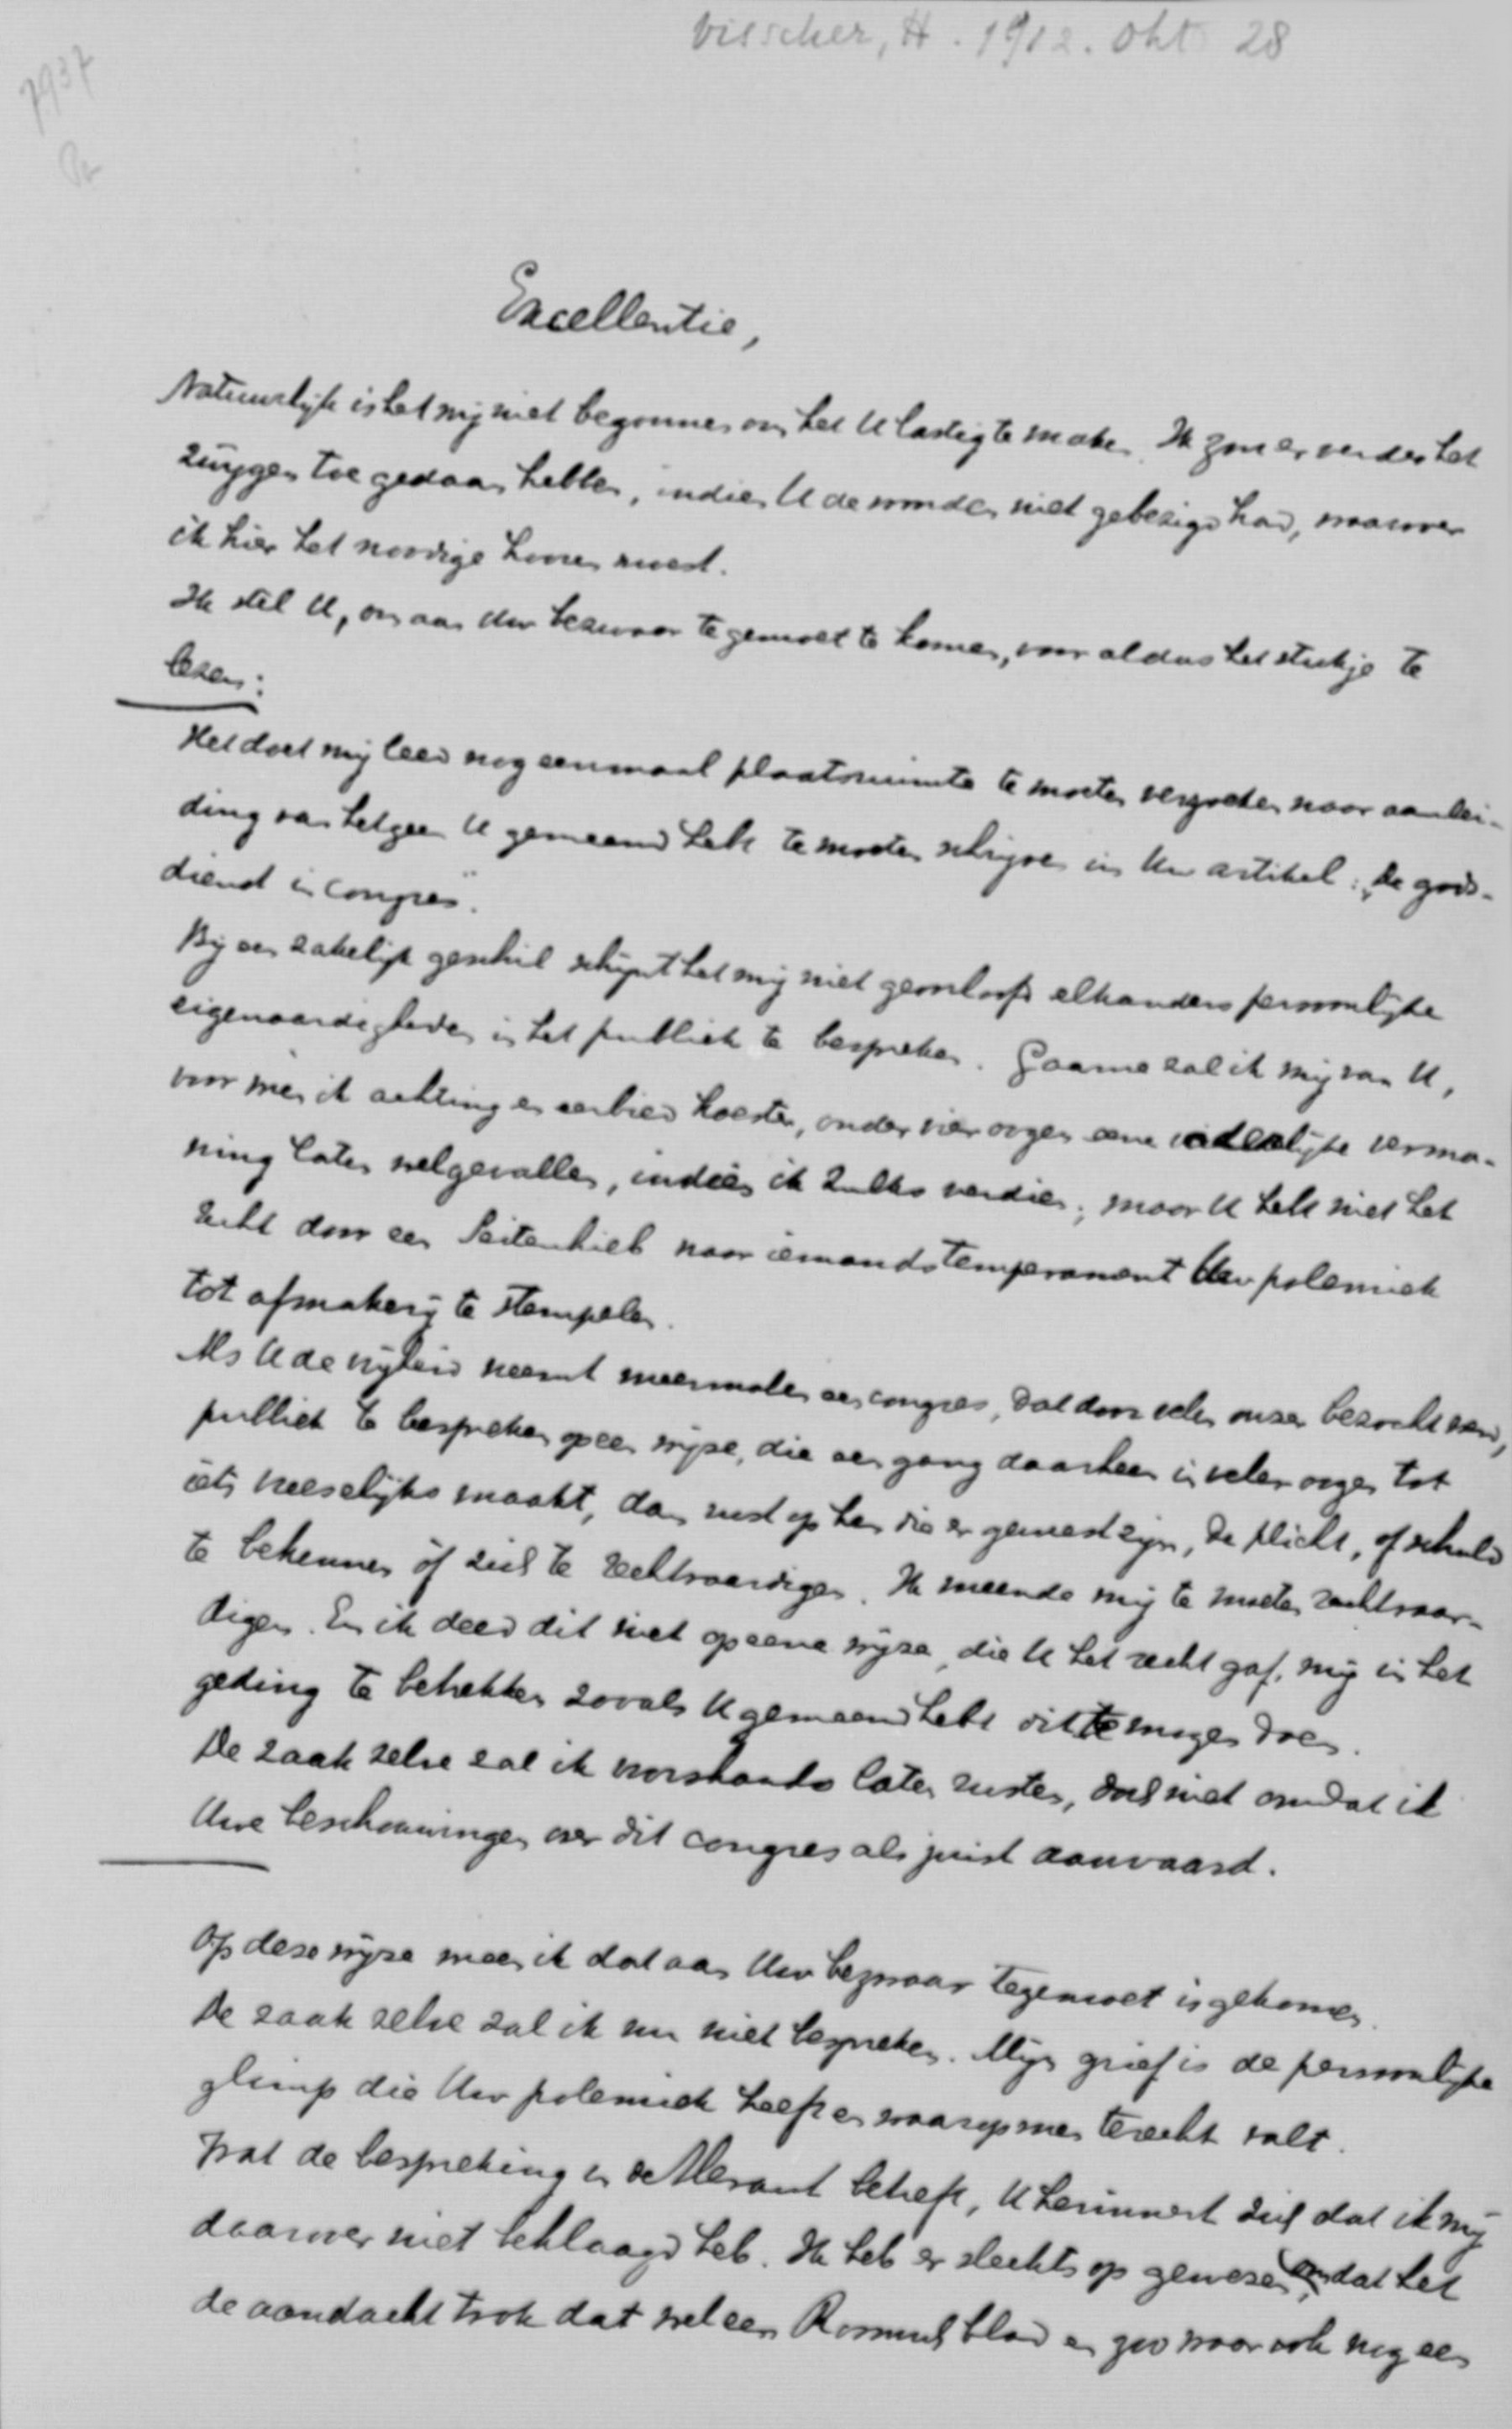 Visscher, H. 1912. Okt 28
7937
Excellentie,
Natuurlijk is het mij niet begonnen om het U lastig te maken. Ik zou er verder het
zwijgen toe gedaan hebben, indien U de woorden niet gebezigd had, waarover
ik hier het noodige hooren moest.
Ik stel U, om aan Uw bezwaar tegemoet te komen, voor aldus het stukje te
lezen:
Het doet mij leed nog eenmaal plaatsruimte te moeten verzoeken naar aanlei-
ding van hetgeen U gemeend hebt te moeten schrijven in Uw artikel: "De gods-
dienst in congres".
Bij een zakelijk geschil schijnt het mij niet geoorloofd elkanders persoonlijke
eigenaardigheden in het publiek te bespreken. Gaarne zal ik mij van U,
voor wien ik achting en eerbied koester, onder vier oogen eene vaderlijke verma-
ning laten welgevallen, indien ik zulks verdien; maar U hebt niet het
recht door een Seitenhieb naar iemands temperament Uw polemiek
tot afmakerij te stempelen.
Als U de vrijheid neemt meermalen een congres, dat door velen onzer bezocht werd,
publiek te bespreken op een wijze, die een gang daarheen in veler oogen tot
iets vreeselijks maakt, dan rust op hen die er geweest zijn, de plicht, of schuld
te bekennen óf zich te rechtvaardigen. Ik meende mij te moeten rechtvaar-
digen. En ik deed dit niet op eene wijze, die U het recht gaf, mij in het
geding te betrekken zooals U gemeend hebt dit te mogen doen.
De zaak zelve zal ik voorshands laten rusten, doch niet omdat ik
Uwe beschouwingen over dit congres als juist aanvaard.
Op deze wijze meen ik dat aan Uw bezwaar tegemoet is gekomen.
De zaak zelve zal ik nu niet bespreken. Mijn grief is de persoonlijke
glimp die Uw polemiek heeft en waarop men terecht valt.
Wat de bespreking in de Heraut betreft, U herinnert zich dat ik mij
daarover niet beklaagd heb. Ik heb er slechts op gewezen, omdat het
de aandacht trok dat wel een Roomsch blad en zoo waar ook nog een